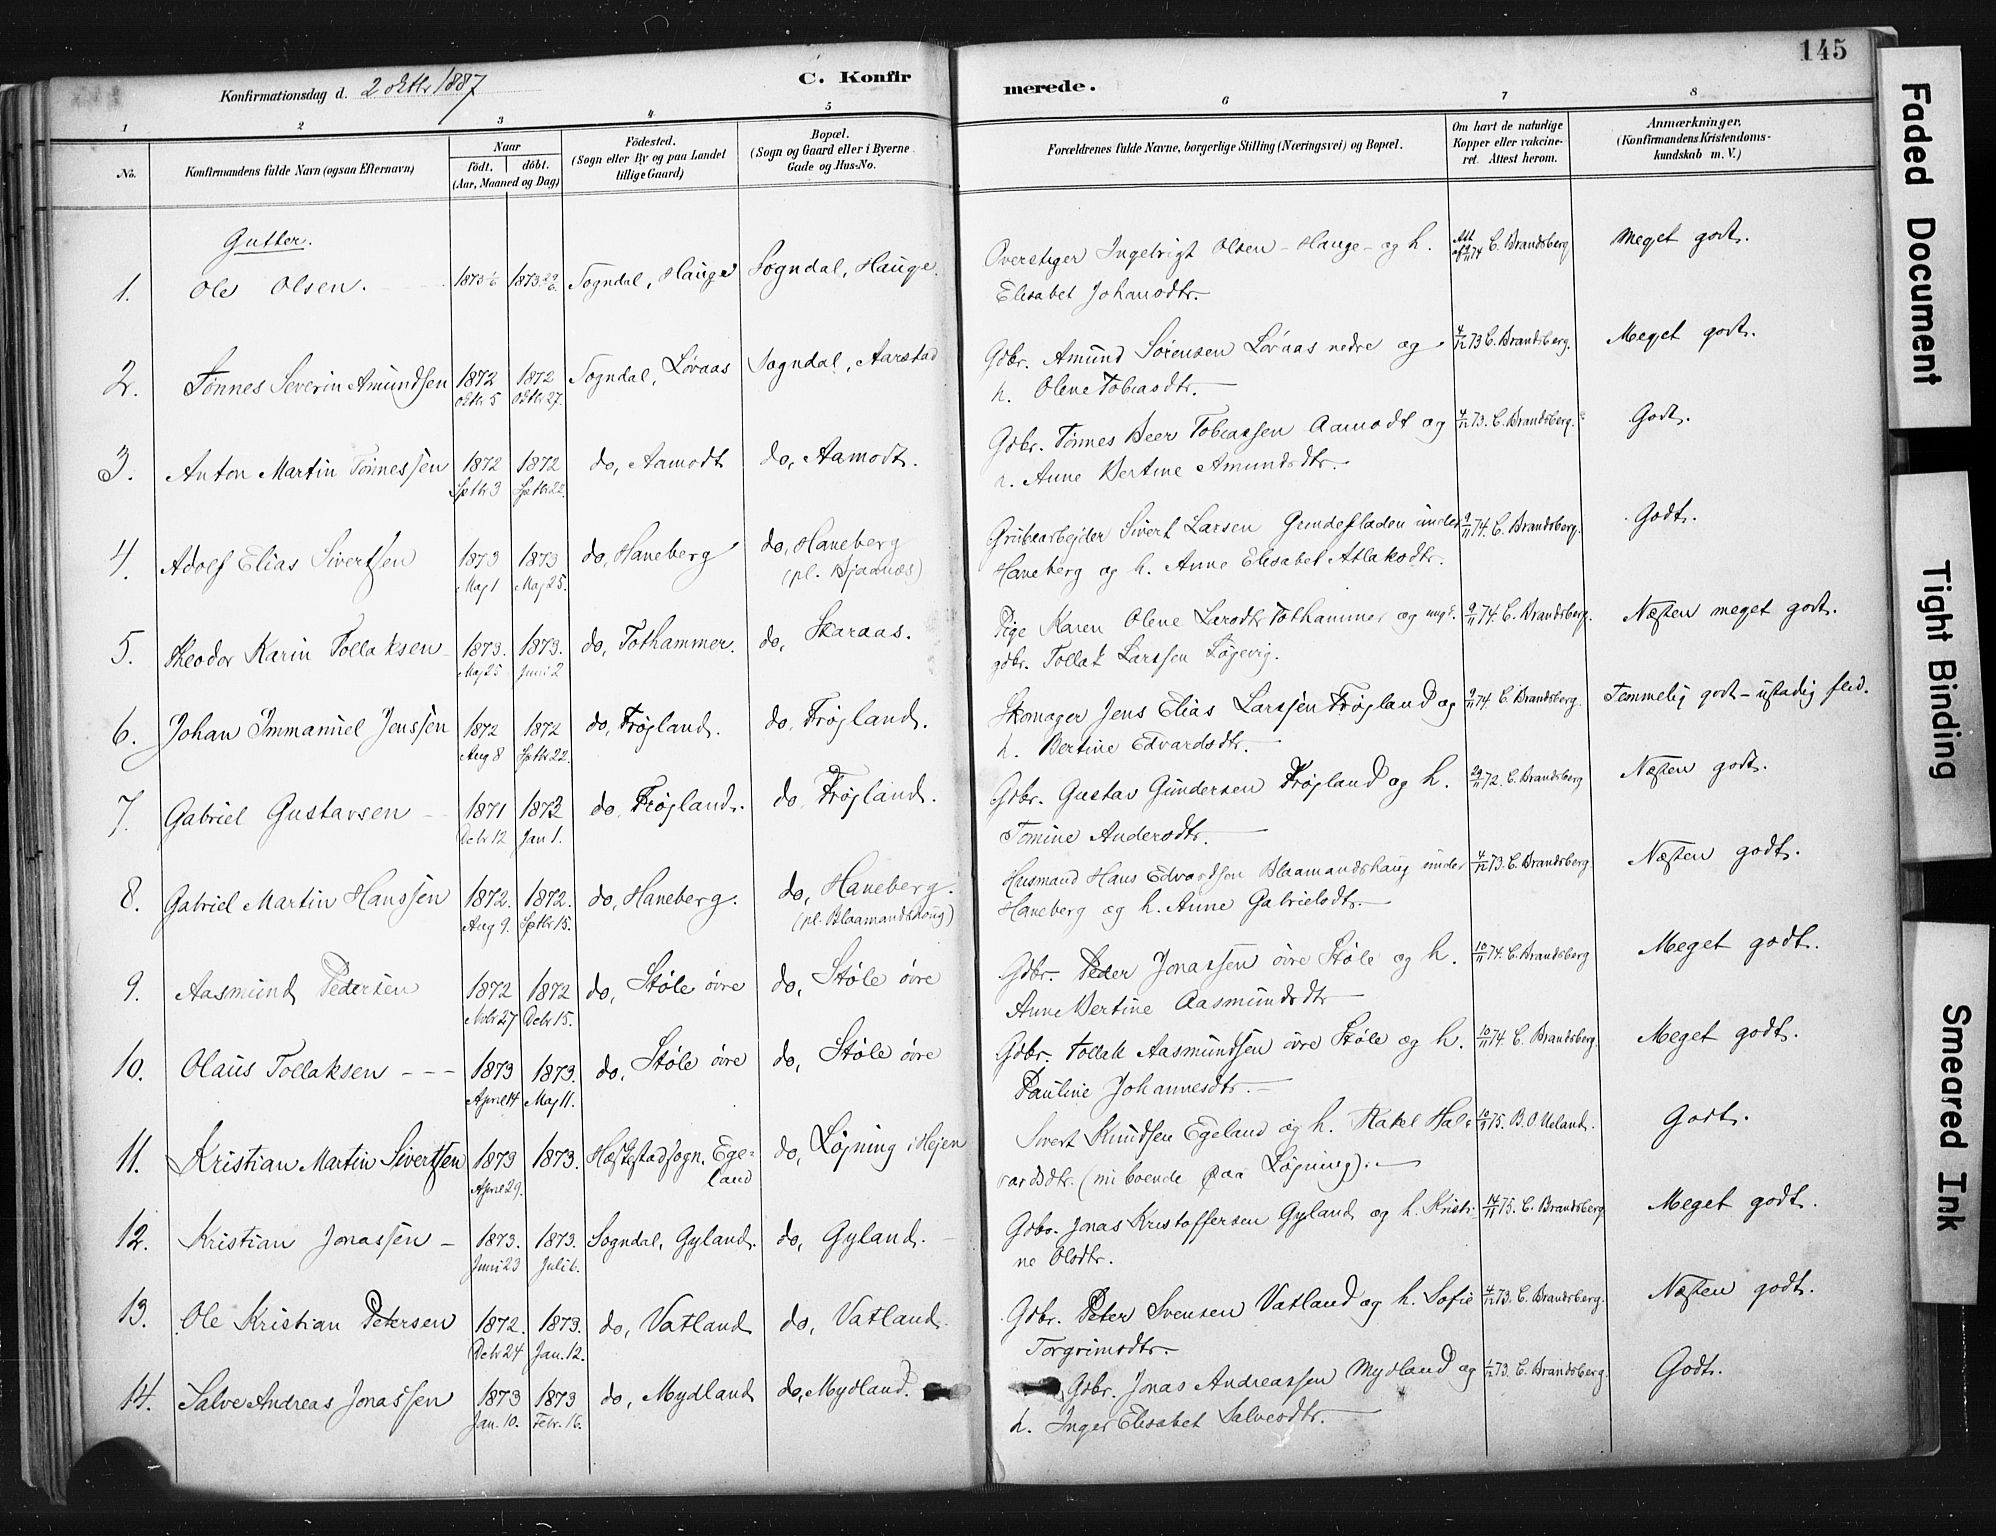 145
Konfirmationsdag d. 2 oktbr 1887
C. Konfirmerede.
1 2 3 4 5 6 7 8
No. Konfirmandens fulde Navn (ogsaa Efternavn) Naar født. døbt. (Aar, Maaned og Dag) Födested. (Sogn eller By og paa Landet tillige Gaard) Bopæl. (Sogn og Gaard eller i Byerne Gade og Hus-No. Forældrenes fulde Navne, borgerlige Stilling (Næringsvei) og Bopæl. Om havt de naturlige Kopper eller vakcineret. Attest herom. Anmærkninger. (Konfirmandens Kristendomskundskab m. V.)
Gutter.
1. Ole Olsen. 1873 1873 Sogndal, Hauge Sogndal, Hauge. Overstiger Ingebrigt Olsen Hauge og h. Att. 74 C. Brandsberg Meget godt.
Elisabet Johansdtr.
2. Tønnes Severin Amundsen 1872 1872 Sogndal, Løvaas Sogndal, Aarstad Gdbr. Amund Sørensen Løvaas nedre og 4/12 73 C. Brandsberg. Meget godt.
oktbr 5 oktbr 27. h. Olene Tobiasdtr.
3. Anton Martin Tønnessen 1872 1872 do, Aamodt do, Aamodt. Gdbr. Tønnes Beer Tobiassen Aamodt og 4/12 73. C. Brandsberg. Godt.
Septbr 3 Septbr 22. h. Anne Bertine Amundsdtr.
4. Adolf Elias Sivertsen 1873 1873 do, Haneberg do, Haneberg Grubearbejder Sivert Larsen under 9/11 74. C. Brandsberg. Godt.
Maj 1 Maj 25. (pl. Bjaanæs) Haneberg og h. Anne Elisabet Atlaksdtr.
5. Theodor Karin Tollaksen 1873. 1873. do, Tothammer. do, Skaraas. Pige Karen Olene Larsdtr Tothammer og ungk. 9/11 74. C. Brandsberg. Næsten meget godt.
Maj 25 Juni 2 gdbr. Tollak Larssen Løgevig.
6. Johan Immanuel Jenssen 1872 1872 do, Frøjland. do, Frøjland. Skomager Jens Elias Larssen Frøjland og 9/11 74 C. Brandsberg. Temmelig godt – ustadig flid.
Aug 8 Septbr 22. h. Bertine Edvardsdtr.
7. Gabriel Gustavsen 1871 1872 do, Frøjland. do, Frøjland. Gdbr. Gustav Gundersen Frøjland og h. 29/11 72. C. Brandsberg Næsten godt.
Decbr 12 Jan 1. Tomine Andersdtr.
8. Gabriel Martin Hanssen 1872. 1872. do, Haneberg. do, Haneberg. Husmand Hans Edvardsen Blaamandshaug under 4/12 73. C. Brandsberg Næsten godt.
Aug 9. Septbr 15. (pl. Blaamandshaug) Haneberg og h. Anne Gabrielsdtr.
9. Aasmund Pedersen 1872 1872 do, Støle øvre do, Støle øvre Gdbr. Peder Jonassen øvre Støle og h. 10/11 74. C. Brandsberg Meget godt.
Novbr 27 Decbr 15. Anne Bertine Aasmundsdtr
10. Olaus Tollaksen 1873 1873. do, Støle øvre do, Støle øvre Gdbr. Tollak Aasmundsen øvre Støle og h. 10/11 74. C. Brandsberg. Meget godt.
April 14 Maj 11. Pauline Johannesdtr.
11. Kristian Martin Sivertsen 1873 1873. Hæstestad sogn, Ege- do, Løjning i Hejen Sivert Knudsen Egeland og h. Rakel Hal- 75. B. O Ueland. Godt.
April 29. land vardsdtr. (nu boende paa Løjning).
12. Kristian Jonassen 1873. 1873. Sogndal, Gyland. do, Gyland. Gdbr. Jonas Kristoffersen Gyland og h. Kristi- 14/11 75. C. Brandsberg Meget godt.
Juni 23 Juli 6. ne Olsdtr.
13. Ole Kristian Petersen 1872. 1873. do, Vatland do, Vatland. Gdbr. Peter Svensen Vatland og h. Sofie 4/12 73. C. Brandsberg. Næsten godt.
Decbr 24 Jan. 12. Torgrimsdtr.
14. Salve Andreas Jonassen 1873 1873 do, Mydland do, Mydland. Gdbr. Jonas Andreassen Mydland og 73. C. Brandsberg. Godt.
Jan. 10. Febr. 16. h. Inger Elisabet Salvesdtr.
Faded Document
Tight Binding
Smeared Ink